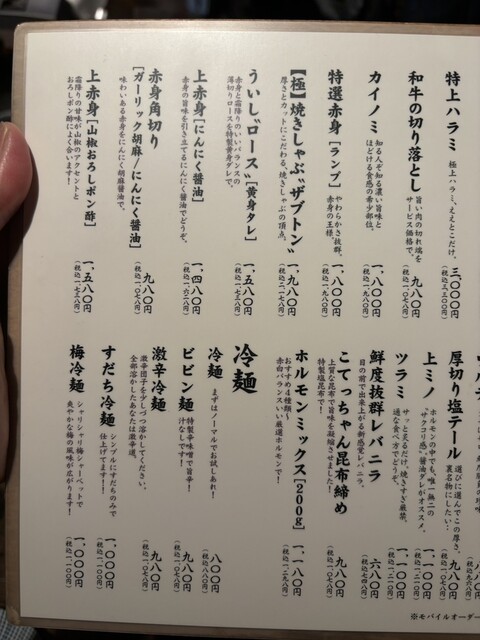 特上ハラミ
極上ハラミ、ええとこだけ。
三、〇〇〇円
(税込三、三〇〇円)
和牛の切り落とし
旨い肉の切れ端を
サービス価格で。
九八〇円
(税込一、〇七八円)
カイノミ
知る人ぞ知る濃い旨味と
ほどける食感の希少部位。
一、八〇〇円
(税込一、九八〇円)
特選赤身[ランプ]
やわらかさ抜群、
赤身の王様。
一、八〇〇円
(税込一、九八〇円)
【極】焼きしゃぶ“ザブトン”
厚さとカットにこだわる、焼きしゃぶの頂点。
一、九八〇円
(税込二、一七八円)
ういし“ロース”[黄身タレ]
赤身と霜降りのいいバランスの
薄切りロースを特製黄身ダレで。
一、五八〇円
(税込一、七三八円)
上赤身[にんにく醤油]
赤身の旨味を引き立てるにんにく醤油でどうぞ。
一、四八〇円
(税込一、六二八円)
赤身角切り
[ガーリック胡麻/にんにく醤油]
味わいある赤身をにんにく胡麻醤油で。
九八〇円
(税込一、〇七八円)
上赤身[山椒おろしポン酢]
霜降りの甘味が山椒のアクセントと
おろしポン酢によく合います!
一、五八〇円
(税込一、七三八円)
厚切り塩テール
選びに選んでこの厚さ、
裏名物にしたい…
九八〇円
(税込一、〇七八円)
上ミノ
ホルモンの中でも、唯一無二の
“サクコリ感”。醤油ダレがオススメ。
一、一〇〇円
(税込一、二一〇円)
ツラミ
サッと炙るだけ。焼きすぎ厳禁、
通な食べ方でどうぞ。
一、一〇〇円
(税込一、二一〇円)
鮮度抜群レバニラ
目の前で出来上がる新感覚レバニラ。
六八〇円
(税込七四八円)
こてっちゃん昆布締め
上質な昆布で旨味を凝縮させました!
特製塩昆布で!
九八〇円
(税込一、〇七八円)
ホルモンミックス[200g]
おすすめ4種類〜
赤白バランスいい厳選ホルモンで!
一、一八〇円
(税込一、二九八円)
冷麺
冷麺
まずはノーマルでお試しあれ!
八〇〇円
(税込八八〇円)
ビビン麺
特製辛味噌で旨辛!
汁なしです!
九八〇円
(税込一、〇七八円)
激辛冷麺
激辛団子を少しづつ溶かしてください。
全部溶かしたあなたは激辛通。
九八〇円
(税込一、〇七八円)
すだち冷麺
シンプルにすだちのみで
仕上げてます!!
一、〇〇〇円
(税込一、一〇〇円)
梅冷麺
シャリシャリ梅シャーベットで
爽やかな梅の風味が広がります!
一、〇〇〇円
(税込一、一〇〇円)
※モバイルオーダー